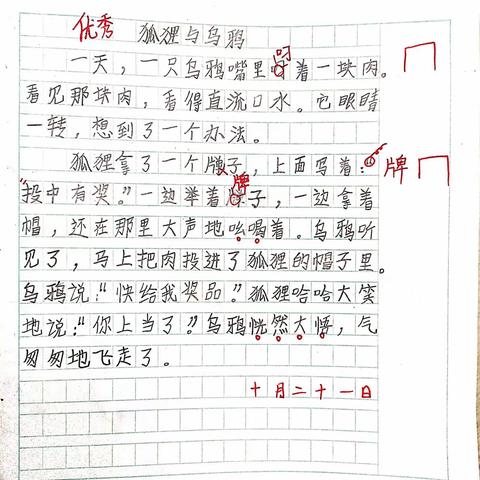 优秀 狐狸与乌鸦
一天，一只乌鸦嘴里叼着一块肉。
看见那块肉，看得直流口水。它眼睛
一转，想到了一个办法。
狐狸拿了一个牌子，上面写着：牌
“投中有奖。”一边举着牌子，一边拿着
帽，还在那里大声地吆喝着。乌鸦听
见了，马上把肉投进了狐狸的帽子里。
乌鸦说：“快给我奖品。”狐狸哈哈大笑
地说：“你上当了？”乌鸦恍然大悟，气
匆匆地飞走了。
十月二十一日